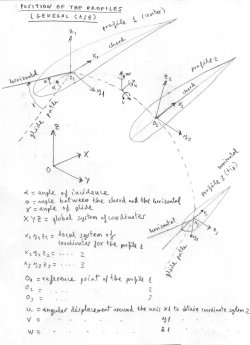 POSITION OF THE PROFILES
(GENERAL CASE)
profile 1 (center)
z1
x1
chord
horizontal
y1
profile 2
z2
chord
glide path
Z
X
Y
O
profile 3 (tip)
horizontal
glide path
α = angle of incidence
θ = angle between the chord and the horizontal
γ = angle of glide
X Y Z = global system of coordinates
x1 y1 z1 = local system of
coordinates for the profile 1
x2 y2 z2 = . . . . 2
x3 y3 z3 = . . . . 3
O1 = reference point of the profile 1
O2 = 2
O3 = 3
u = angular displacement around the axis x1 to obtain coordinate system 2
v = y1
w = z1